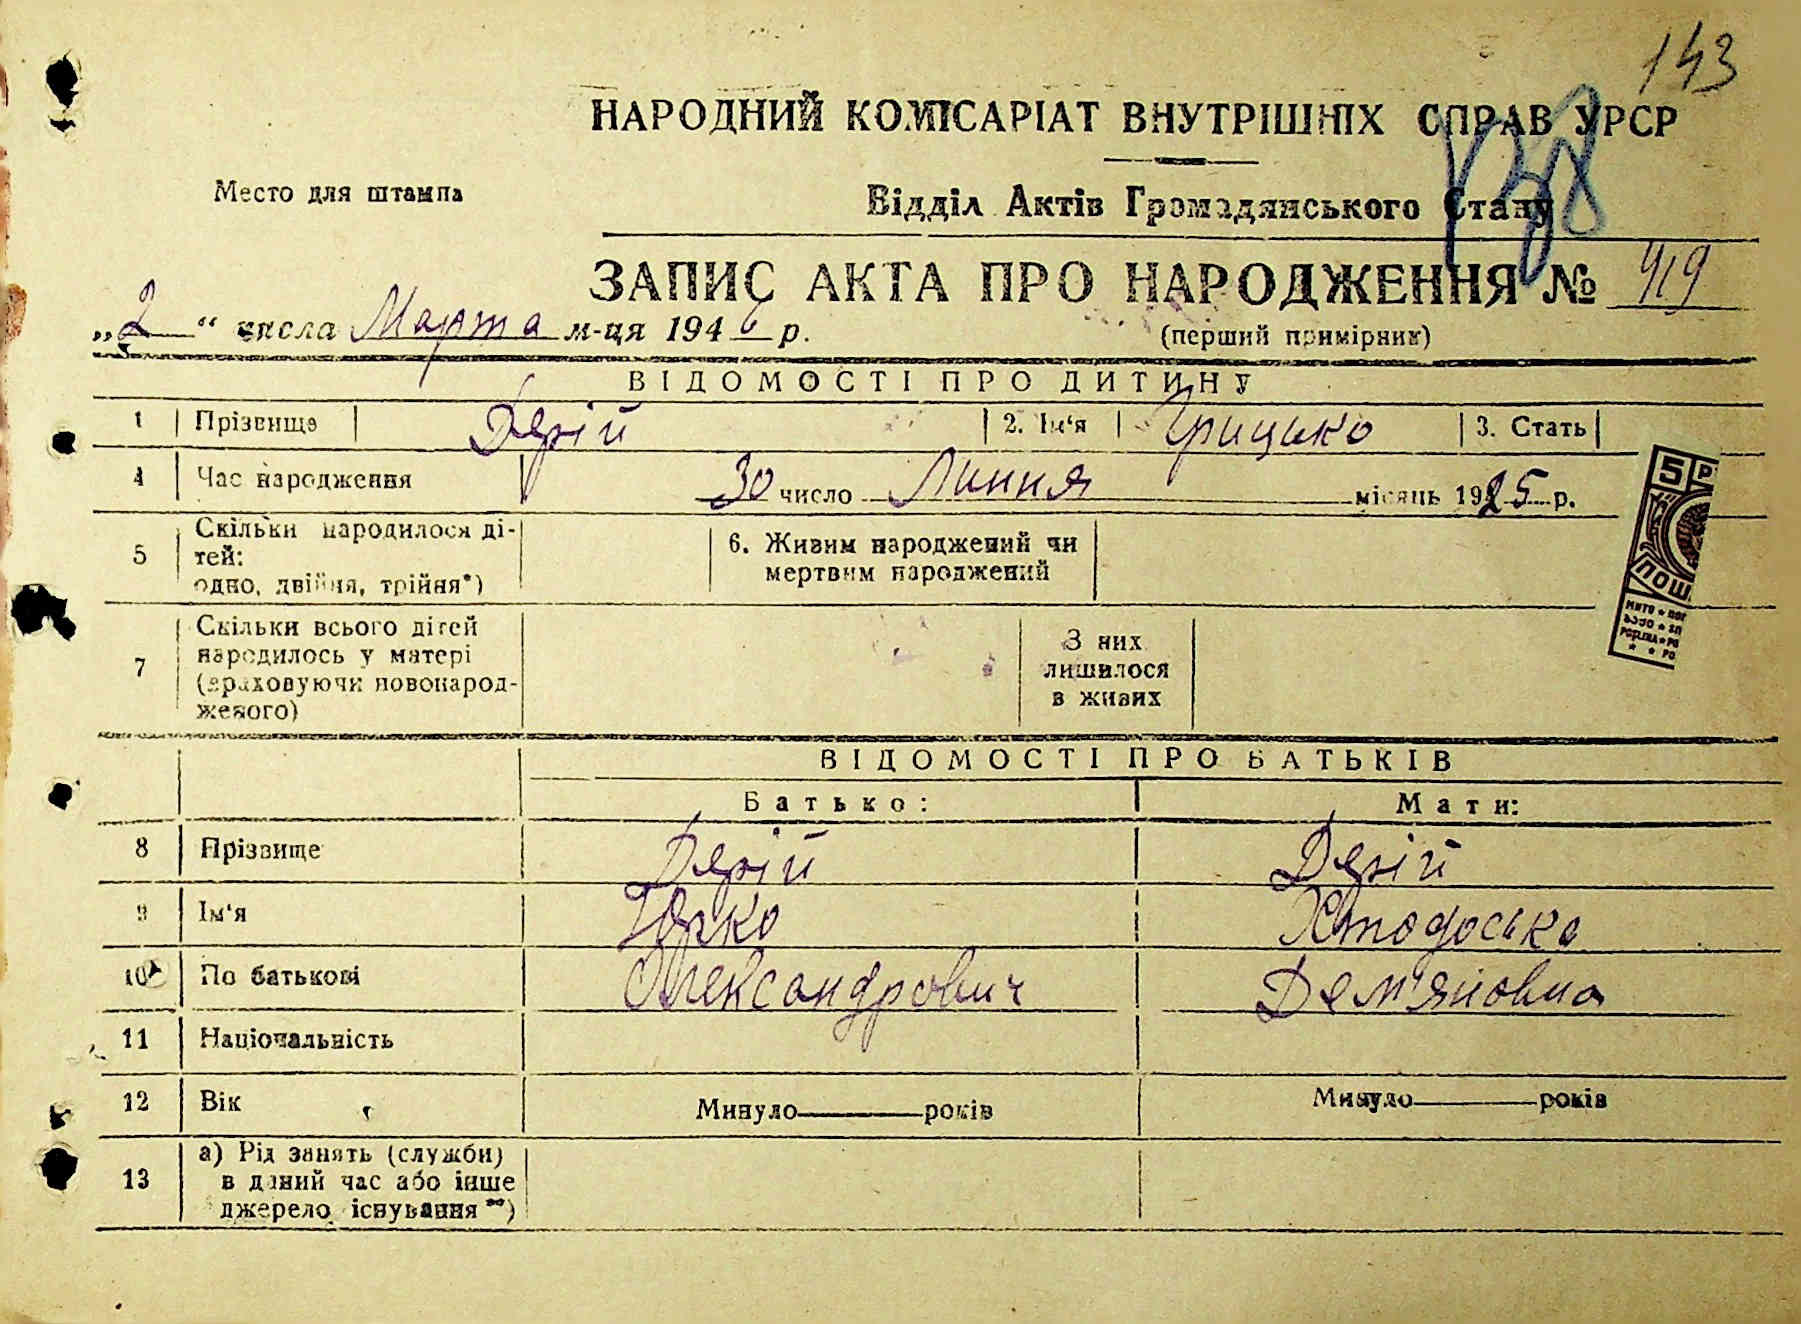 143
НАРОДНИЙ КОМІСАРІАТ ВНУТРІШНІХ СПРАВ УРСР
Место для штампа
Відділ Актів Громадянського Стану
ЗАПИС АКТА ПРО НАРОДЖЕННЯ № 419
„2“ числа Марта м-ця 1946 р.
(перший примірник)
ВІДОМОСТІ ПРО ДИТИНУ
1 Прізвище Дерій 2. Ім'я Грицько 3. Стать
4 Час народження 30 число Липня місяць 1925 р.
5 Скільки народилося ді-
тей:
одно, двійня, трійня*)
6. Живим народжений чи
мертвим народжений
7 Скільки всього дітей
народилось у матері
(враховуючи новонарод-
женого)
З них
лишилося
в живих
5 Р
ПОШ
ВІДОМОСТІ ПРО БАТЬКІВ
Батько: Мати:
8 Прізвище Дерій Дерій
9 Ім'я Юрко
10 По батькові Олександрович Дем'яновна
11 Національність
12 Вік Минуло років Минуло років
13 а) Рід занять (служби)
в даний час або інше
джерело існування **)